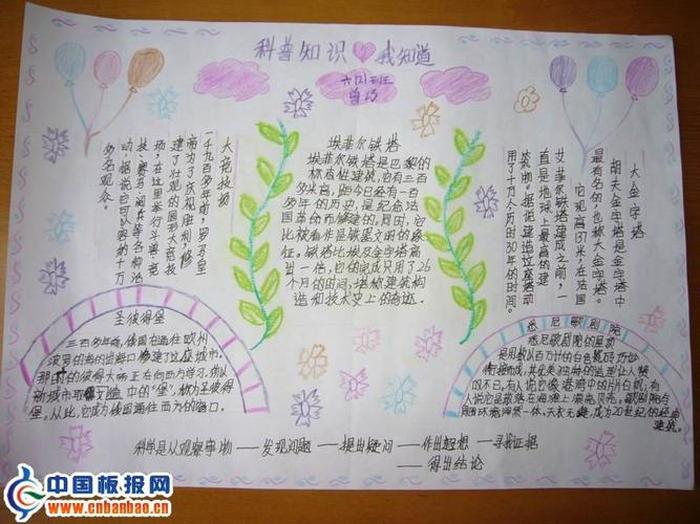 科普知识 我知道
六四班
大竞技场
一千九百多年前,罗马皇
帝为了庆祝胜利,修
建了壮观的圆形大竞技
场,在这里举行斗兽、竞
技、赛马、阅兵等各种活
动。据说它可以容纳十万
多名观众。
埃菲尔铁塔
埃菲尔铁塔是巴黎的
标志性建筑,它有三百
多米高,距今已经有一百
多年的历史,是纪念法
国革命而修建的,同时,它
比被看作是钢铁文明的象
征。铁塔比埃及金字塔高
出一倍,它的完成只用了26
个月的时间,堪称建筑构
造和技术史上的奇迹。
大金字塔
胡夫金字塔是金字塔中
最有名的,也称大金字塔。
它现高137米,在法国
艾菲尔铁塔建成之前,一
直是地球上最高的建
筑物。据说建造这座塔动
用了十万个人历时30年的时间。
圣彼得堡
三百多年前,俄国在通往欧洲
波罗的海的出海口修建了这座城市。
那时的彼得大帝正在向西方学习,所以
新城市取 中的“堡”,称为圣彼得
堡。从此,它成为俄国通往西方的窗口。
悉尼歌剧院
悉尼歌剧院的屋顶
是用数以百万计的白色瓷砖巧妙
衔接而成,其优美独特的造型让人赞
叹不已。有人说它像港湾中的片片白帆,有
人说它是散落在海滩上的漂亮贝壳。歌剧院与
周围环境浑然一体,天衣无缝,成为20世纪的经典
建筑。
科学是从观察事物——发现问题——提出疑问——作出假想——寻找证据
——得出结论
中国板报网
www.cnbanbao.cn